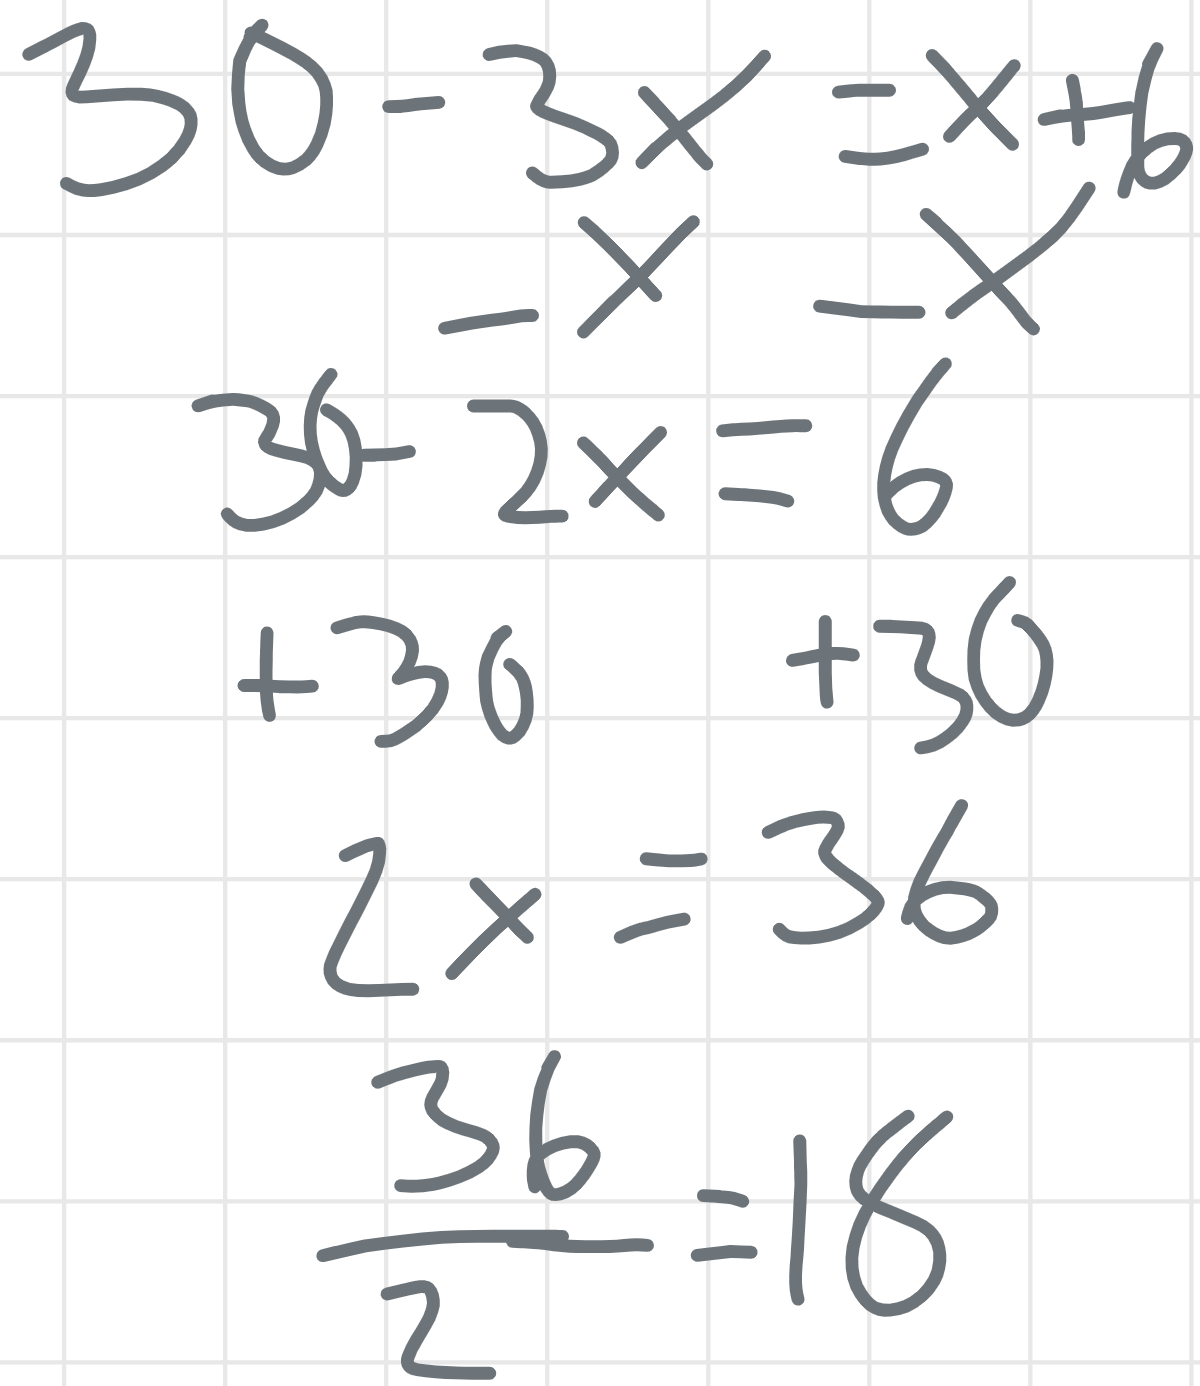 30 - 3x = x + 6
- x - x
30 - 2x = 6
+ 30 + 30
2x = 36
36
/2 = 18